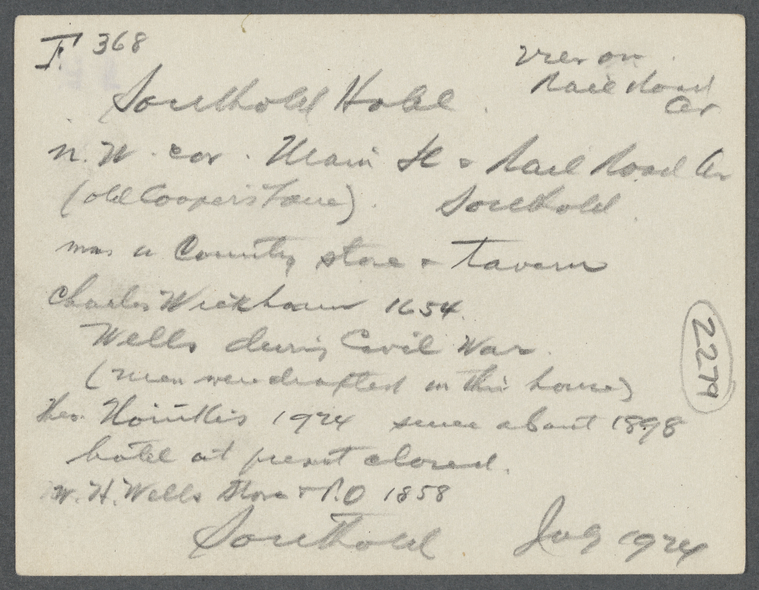 F 368
View on
Rail Road
Av
Southold Hotel.
N.W. cor. Main St & Rail Road Av
(old Cooper's Lane). Southold.
was a Country store & tavern
Charles Wickham 1654.
Wells during Civil War.
(Men were drafted in this house)
1924 since about 1898
hotel at present closed.
W. H. Wells Store & P.O 1858
Southold July 1924
2279